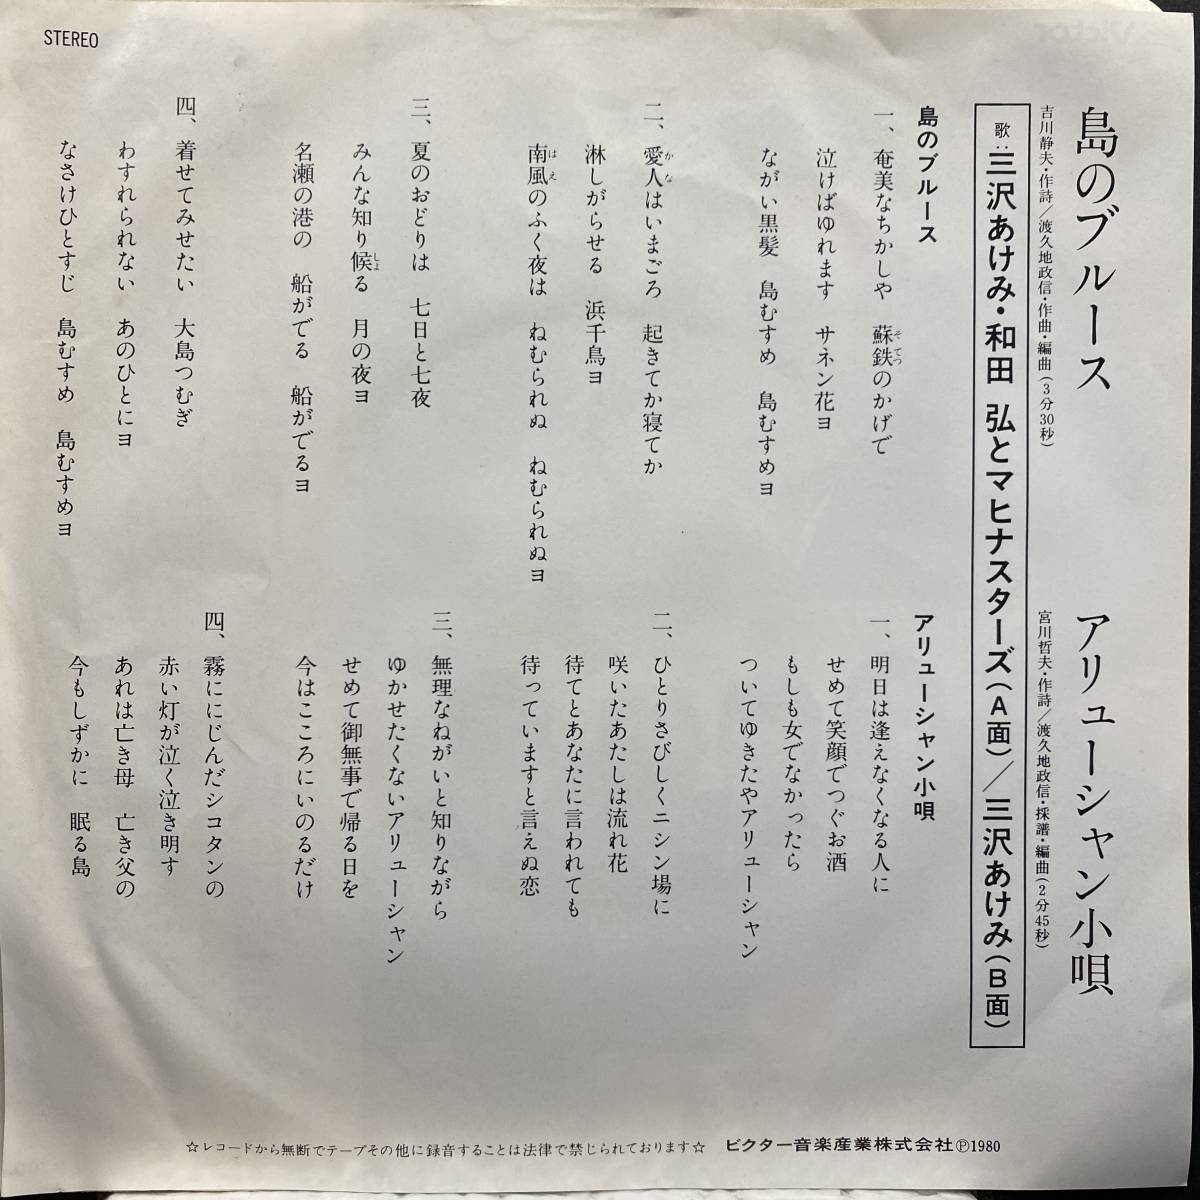 STEREO
島のブルース
吉川静夫・作詩/渡久地政信・作曲・編曲(3分30秒)
アリューシャン小唄
宮川哲夫・作詩/渡久地政信・採譜・編曲(2分45秒)
歌:三沢あけみ・和田 弘とマヒナスターズ(A面)/三沢あけみ(B面)
島のブルース
一、奄美なちかしゃ 蘇鉄のかげで
そてつ
泣けばゆれます サネン花ヨ
ながい黒髪 島むすめ 島むすめヨ
二、愛人はいまごろ 起きてか寝てか
かな
淋しがらせる 浜千鳥ヨ
南風のふく夜は ねむられぬ ねむられぬヨ
はえ
三、夏のおどりは 七日と七夜
みんな知り候る 月の夜ヨ
しよ
名瀬の港の 船がでる 船がでるヨ
四、着せてみせたい 大島つむぎ
わすれられない あのひとにヨ
なさけひとすじ 島むすめ 島むすめヨ
アリューシャン小唄
一、明日は逢えなくなる人に
せめて笑顔でつぐお酒
もしも女でなかったら
ついてゆきたやアリューシャン
二、ひとりさびしくニシン場に
咲いたあたしは流れ花
待てとあなたに言われても
待っていますと言えぬ恋
三、無理なねがいと知りながら
ゆかせたくないアリューシャン
せめて御無事で帰る日を
今はこころにいのるだけ
四、霧ににじんだシコタンの
赤い灯が泣く泣き明す
あれは亡き母 亡き父の
今もしずかに 眠る島
☆レコードから無断でテープその他に録音することは法律で禁じられております☆ ビクター音楽産業株式会社Ⓟ1980